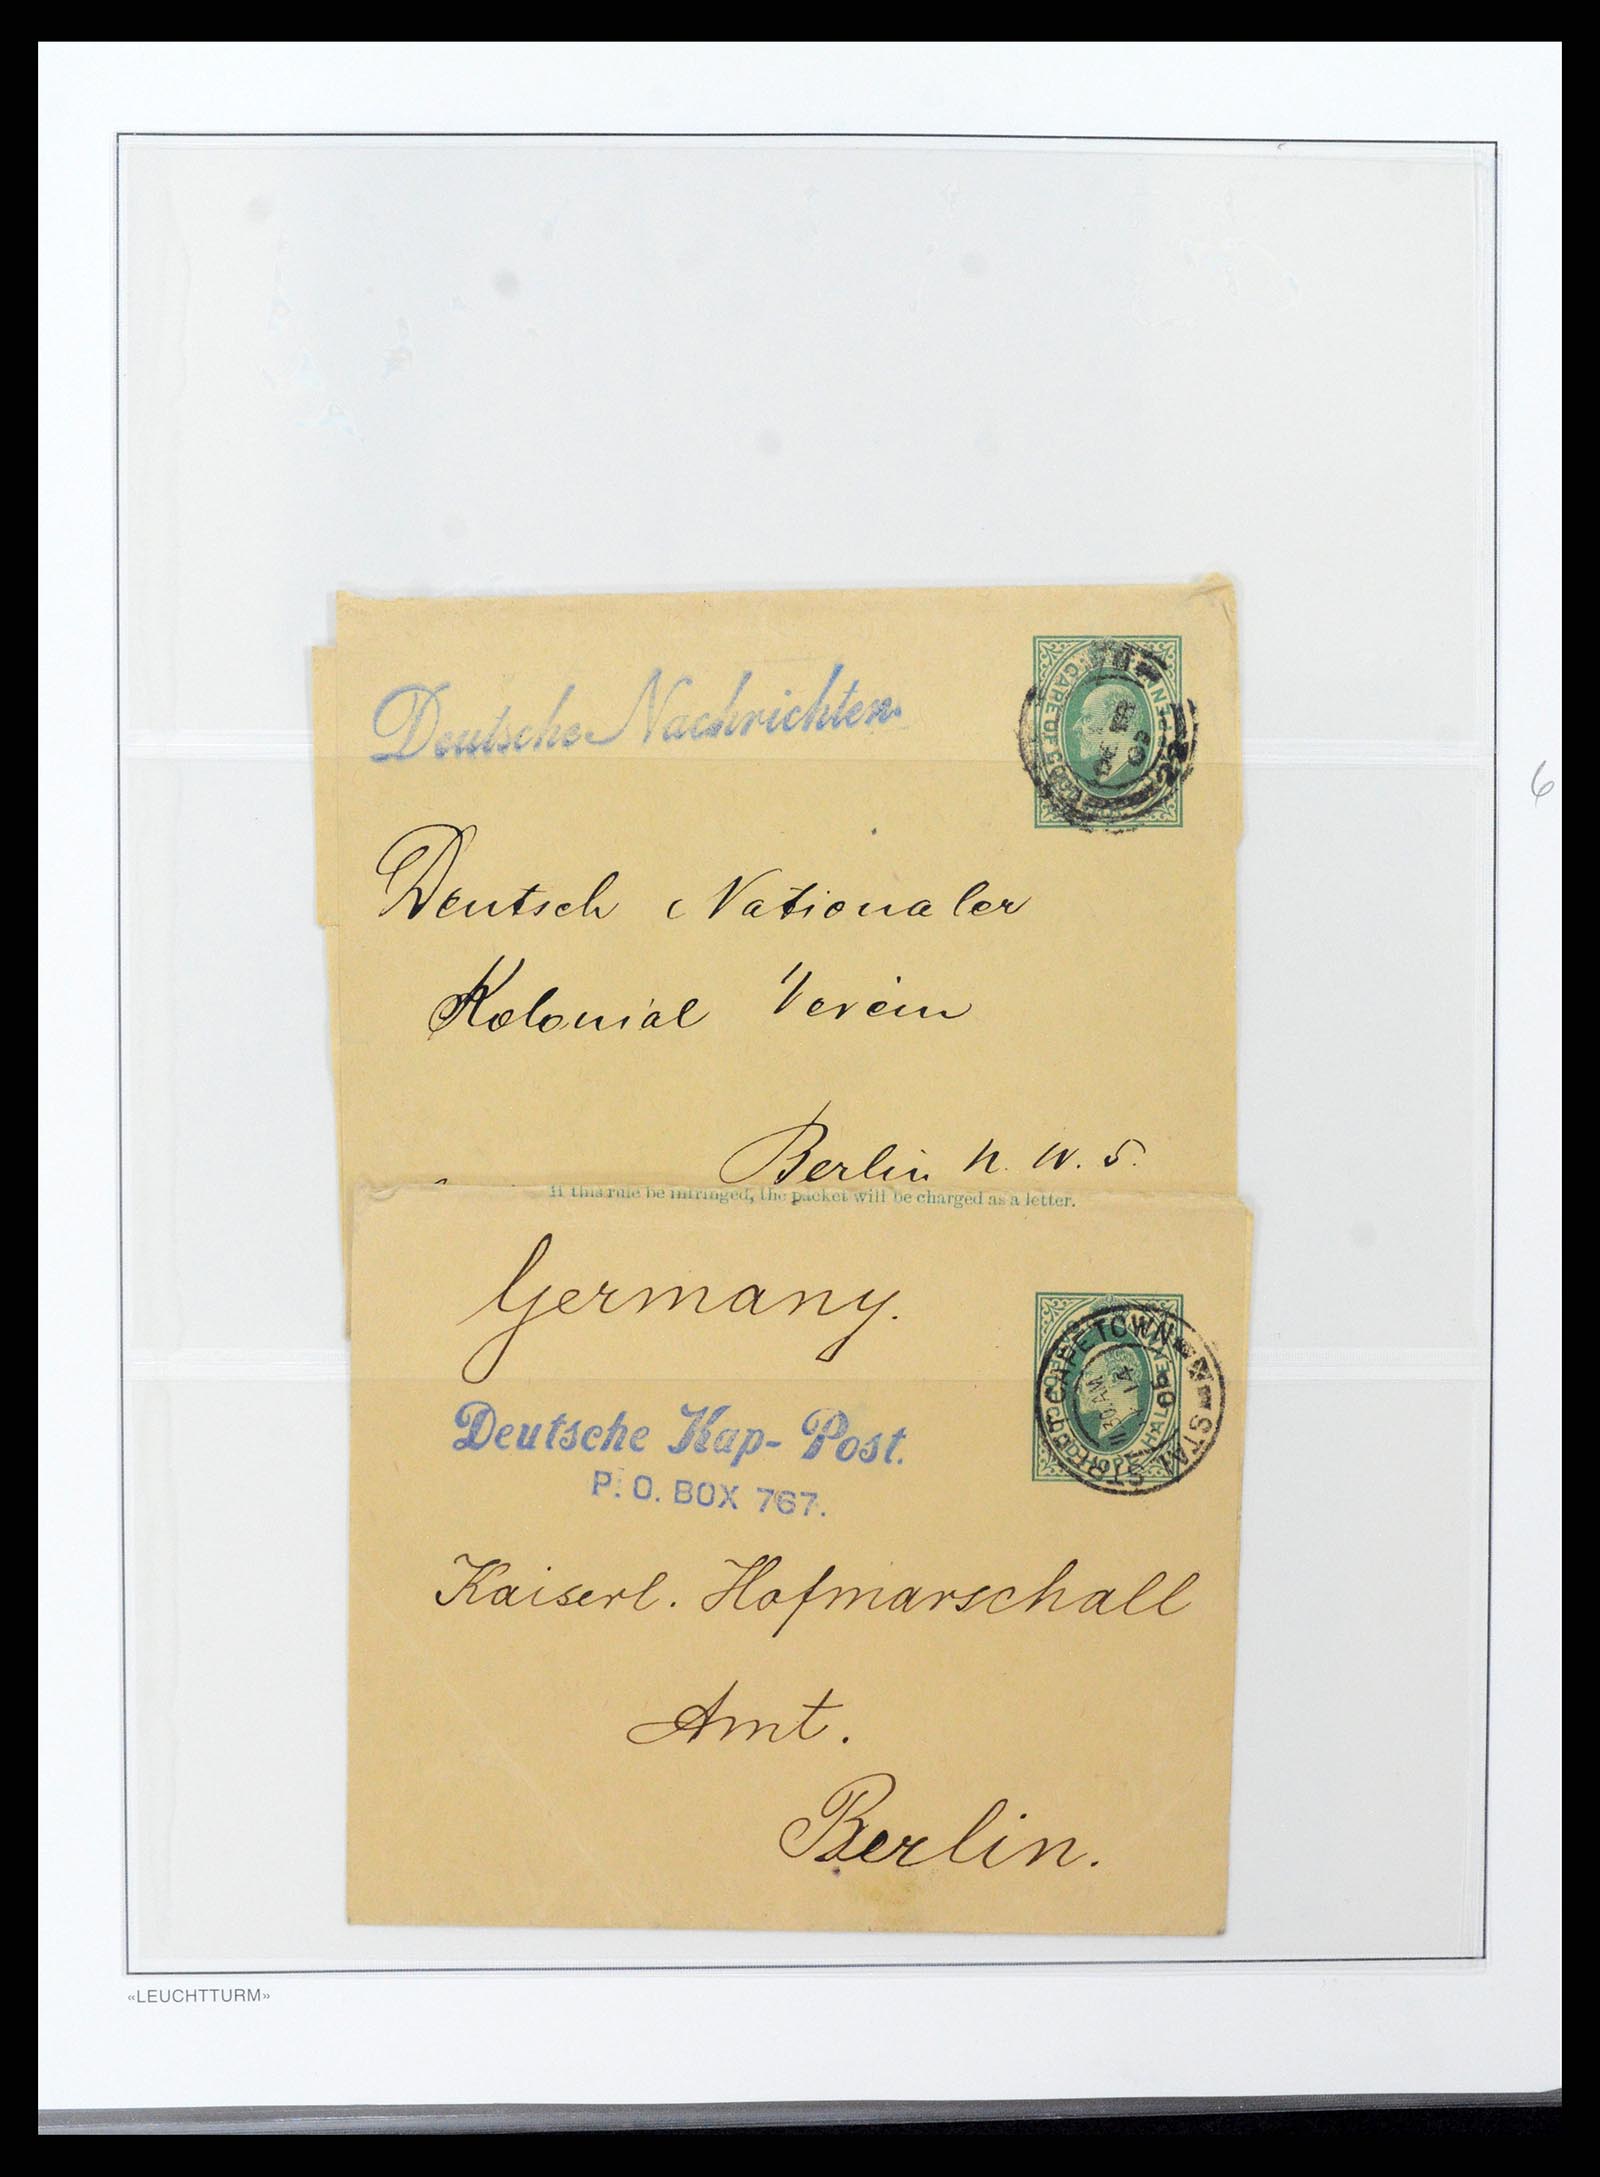 Deutsche Nachrichten
CAPE OF GOOD
22
Deutsch Nationaler
Kolonial Verein
Berlin N. W. 5.
If this rule be infringed, the packet will be charged as a letter.
Germany.
CAPETOWN
Deutsche Kap-Post.
P. O. BOX 767.
Kaiserl. Hofmarschall
Amt.
Berlin.
6
«LEUCHTTURM»